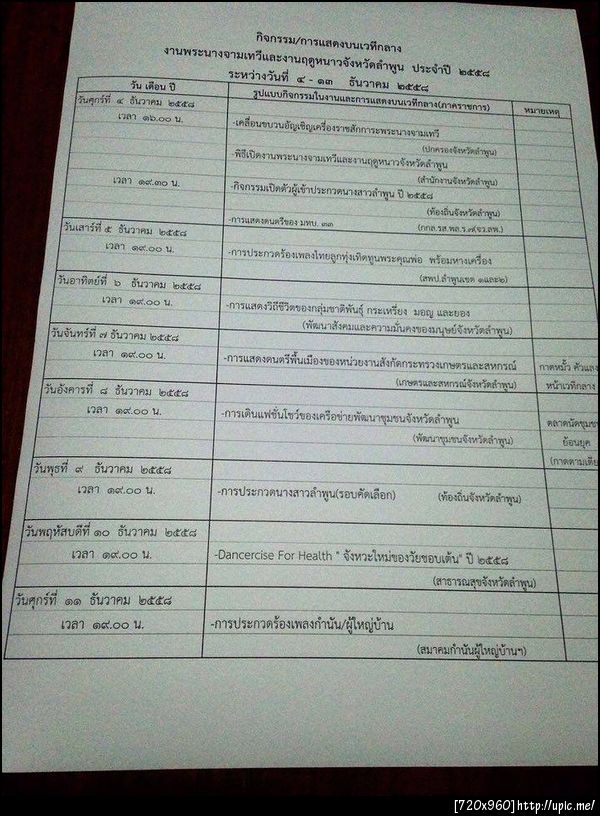 กิจกรรม/การแสดงบนเวทีกลาง
งานพระนางจามเทวีและงานฤดูหนาวจังหวัดลำพูน ประจำปี ๒๕๕๘
ระหว่างวันที่ ๔ - ๑๓ ธันวาคม ๒๕๕๘
วัน เดือน ปี รูปแบบกิจกรรมในงานและการแสดงบนเวทีกลาง(ภาคราชการ) หมายเหตุ
วันศุกร์ที่ ๔ ธันวาคม ๒๕๕๘
เวลา ๑๖.๐๐ น. -เคลื่อนขบวนอัญเชิญเครื่องราชสักการะพระนางจามเทวี
(ปกครองจังหวัดลำพูน)
-พิธีเปิดงานพระนางจามเทวีและงานฤดูหนาวจังหวัดลำพูน
(สำนักงานจังหวัดลำพูน)
เวลา ๑๙.๓๐ น. -กิจกรรมเปิดตัวผู้เข้าประกวดนางสาวลำพูน ปี ๒๕๕๘
(ท้องถิ่นจังหวัดลำพูน)
-การแสดงดนตรีของ มทบ. ๓๓ (กกล.รส.พล.ร.๗(จว.ลพ.)
วันเสาร์ที่ ๕ ธันวาคม ๒๕๕๘
เวลา ๑๙.๐๐ น. -การประกวดร้องเพลงไทยลูกทุ่งเทิดทูนพระคุณพ่อ พร้อมหางเครื่อง
(สพป.ลำพูนเขต ๑และ๒)
วันอาทิตย์ที่ ๖ ธันวาคม ๒๕๕๘
เวลา ๑๙.๐๐ น. -การแสดงวิถีชีวิตของกลุ่มชาติพันธุ์ กระเหรี่ยง มอญ และยอง
(พัฒนาสังคมและความมั่นคงของมนุษย์จังหวัดลำพูน)
วันจันทร์ที่ ๗ ธันวาคม ๒๕๕๘
เวลา ๑๙.๐๐ น. -การแสดงดนตรีพื้นเมืองของหน่วยงานสังกัดกระทรวงเกษตรและสหกรณ์ กาดหมั้ว คัวแลง
(เกษตรและสหกรณ์จังหวัดลำพูน) หน้าเวทีกลาง
วันอังคารที่ ๘ ธันวาคม ๒๕๕๘
เวลา ๑๙.๐๐ น. -การเดินแฟชั่นโชว์ของเครือข่ายพัฒนาชุมชนจังหวัดลำพูน ตลาดนัดชุมช
(พัฒนาชุมชนจังหวัดลำพูน) ย้อนยุค
(กาดตามเตีย
วันพุธที่ ๙ ธันวาคม ๒๕๕๘
เวลา ๑๙.๐๐ น. -การประกวดนางสาวลำพูน(รอบคัดเลือก) (ท้องถิ่นจังหวัดลำพูน)
วันพฤหัสบดีที่ ๑๐ ธันวาคม ๒๕๕๘
เวลา ๑๙.๐๐ น. -Dancercise For Health " จังหวะใหม่ของวัยชอบเต้น" ปี ๒๕๕๘
(สาธารณสุขจังหวัดลำพูน)
วันศุกร์ที่ ๑๑ ธันวาคม ๒๕๕๘
เวลา ๑๙.๐๐ น. -การประกวดร้องเพลงกำนัน/ผู้ใหญ่บ้าน
(สมาคมกำนันผู้ใหญ่บ้านฯ)
[720x960]http://upic.me/